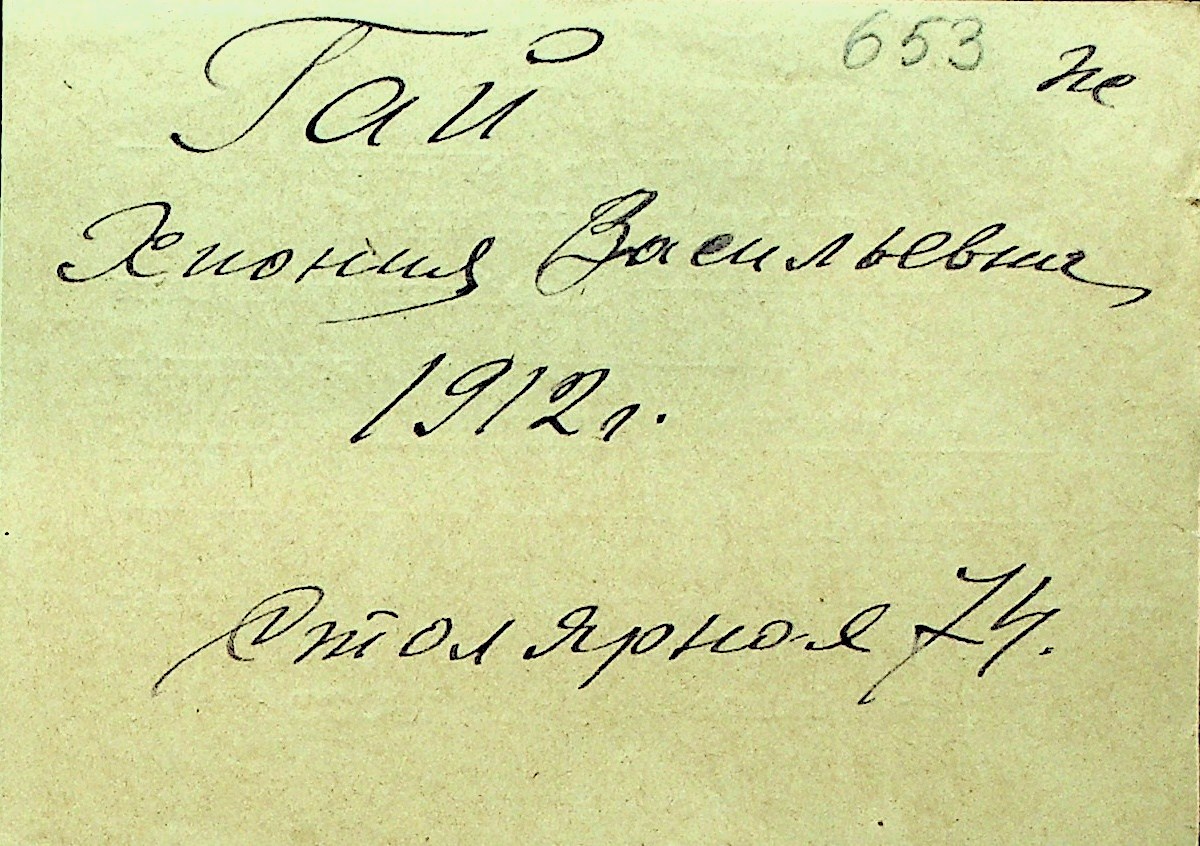 Гай 653 не
Хиония Васильевна
1912 г.
Столярная 74.